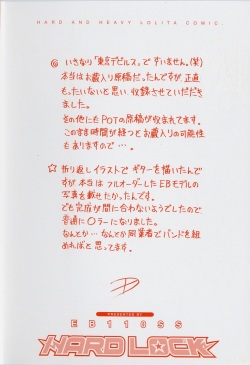 HARD AND HEAVY LOLITA COMIC.
◎ いきなり「東京デビルス」で すいません。(笑)
本当はお蔵入り原稿だったんですが 正直
もったいないと思い 収録させていただき
ました。
その他にも POTの原稿が収まれてます。
このまま時間が経つとお蔵入りの可能性
も ありますので…。
☆ 折り返しイラストで ギターを描いたんで
すが 本当は フルオーダーした EBモデルの
写真を載せたかったんです。
でも完成が間に合わないようでしたので
普通に〇ラーになりました。
なんとか… なんとか同業者でバンドを組
めればと思ってます。
PRESENTED BY
EB110SS
HARD LOCK